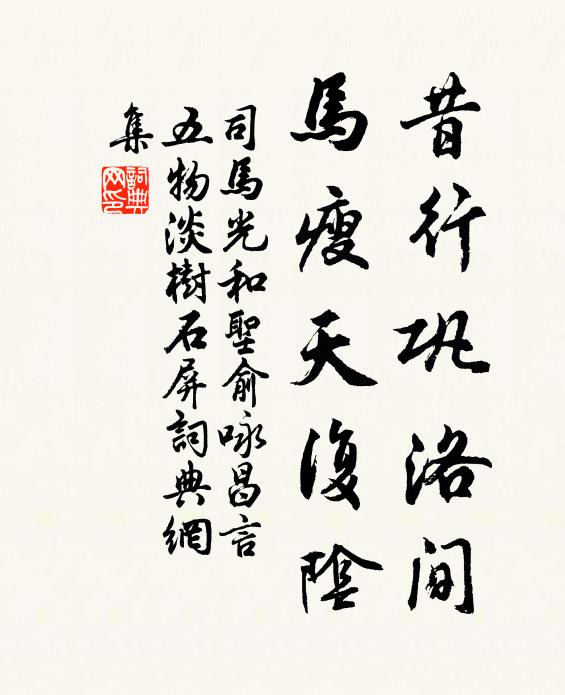 昔行巩洛间
馬瘦天復陰
司馬光和聖俞咏昌言
五物淡樹石屏詞典網
集
詞典網印